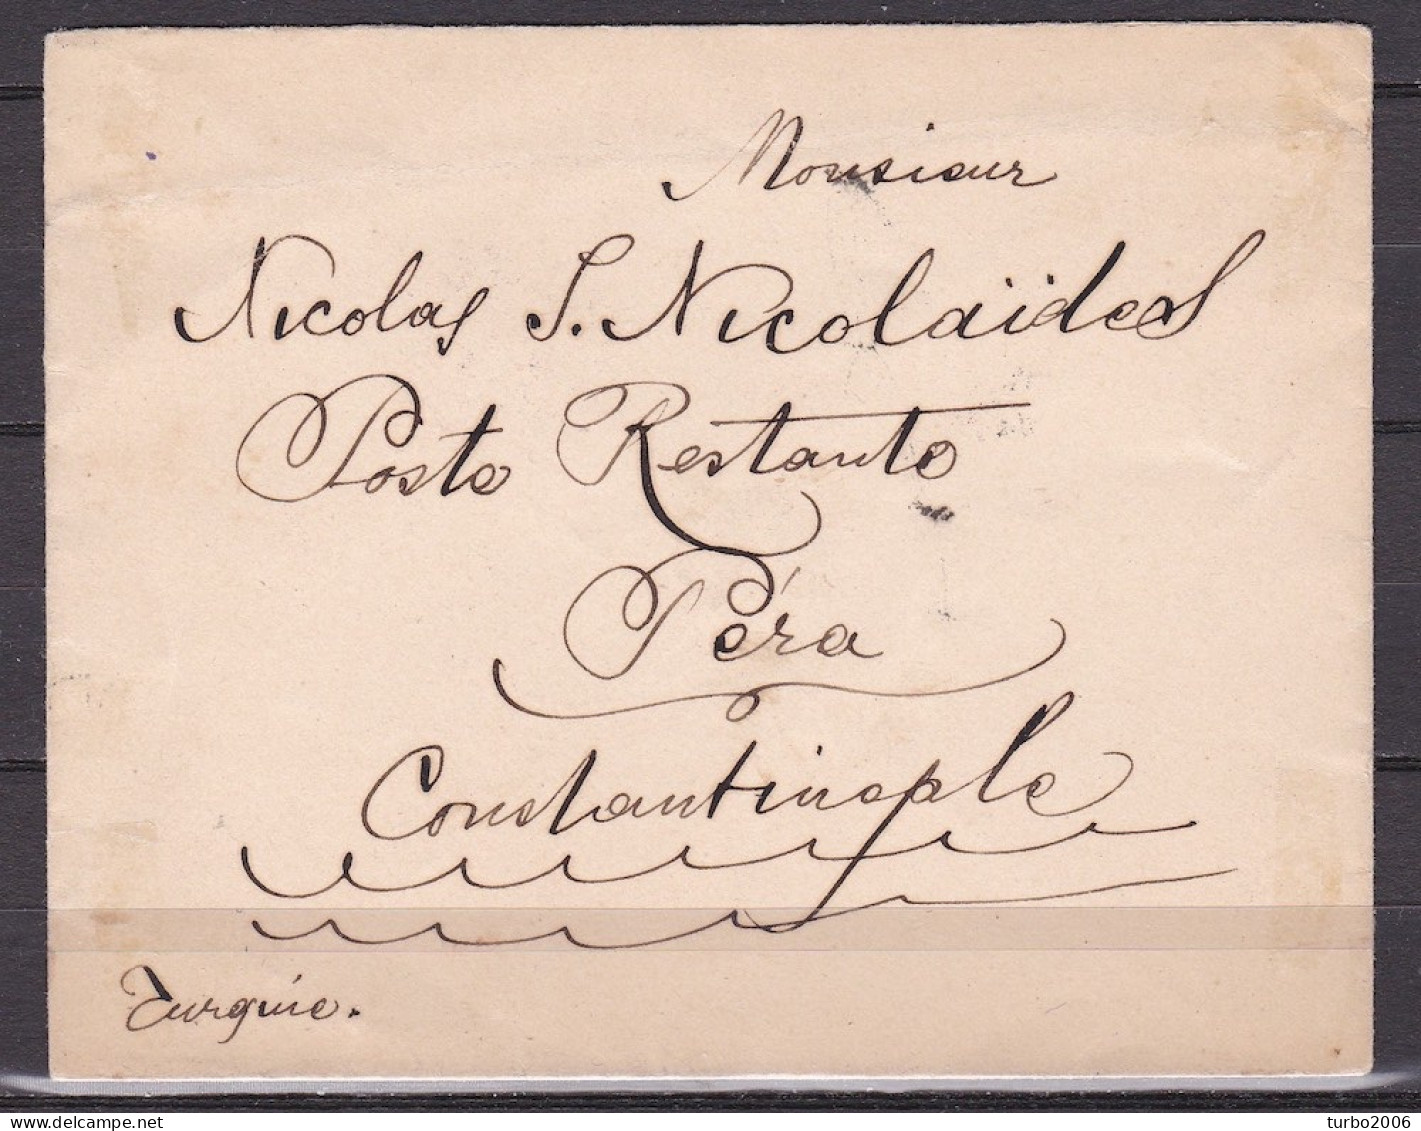 Monsieur
Nicolas S. Nicolaïdes
Poste Restante
Péra
Constantinople
Turquie.
delcampe.net
turbo2006